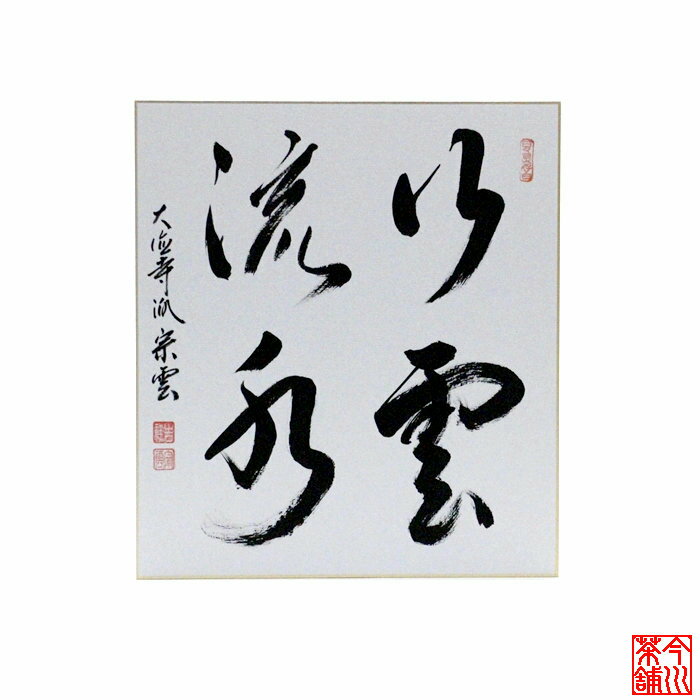 行雲
流水
大徳寺派宗雲
今川
茶舗